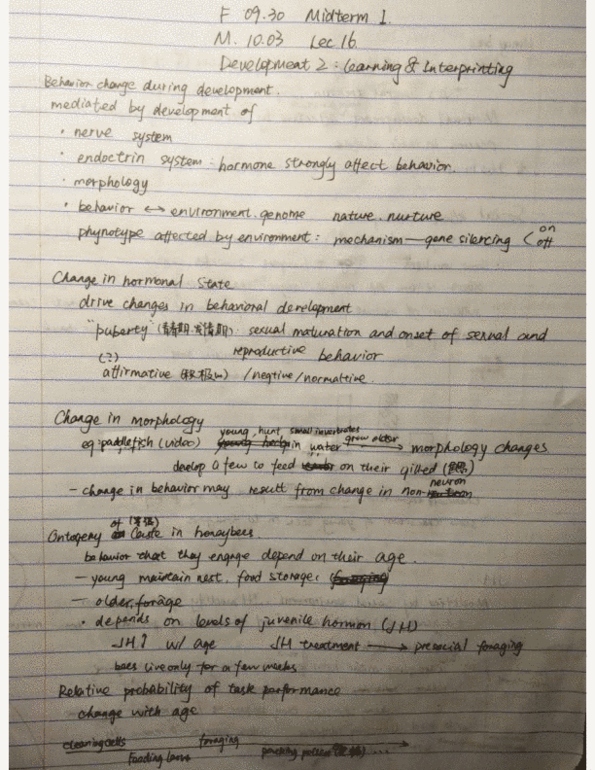 F 09.30 Midterm 1.
M. 10.03 Lec 16.
Development 2: Learning & Interprinting
Behavior change during development.
mediated by development of
· nerve system
· endoctrin system: hormone strongly affect behavior.
· morphology
· behavior ↔ environment. genome nature. nurture
phynotype affected by environment: mechanism — gene silencing < on off
Change in hormonal state
drive changes in behavioral development
"puberty" sexual maturation and onset of sexual and
(2) reproductive behavior
affirmative /negtive/normative.
Change in morphology
young, hunt small invertebrates
eg: paddlefish (video) in water grow older → morphology changes
develop a few to feed on their gilled
neuron
– change in behavior may result from change in non-
of
Ontogeny Caste in honeybees.
behavior that they engage depend on their age.
– young maintain nest, food storage,
– older, forage
· depends on levels of juvenile hormon (JH)
JH↑ w/ age JH treatment → presocial foraging
bees live only for a few weeks
Relative probability of task performance
change with age
cleaning cells foraging
Feeding larva packing pollen ...